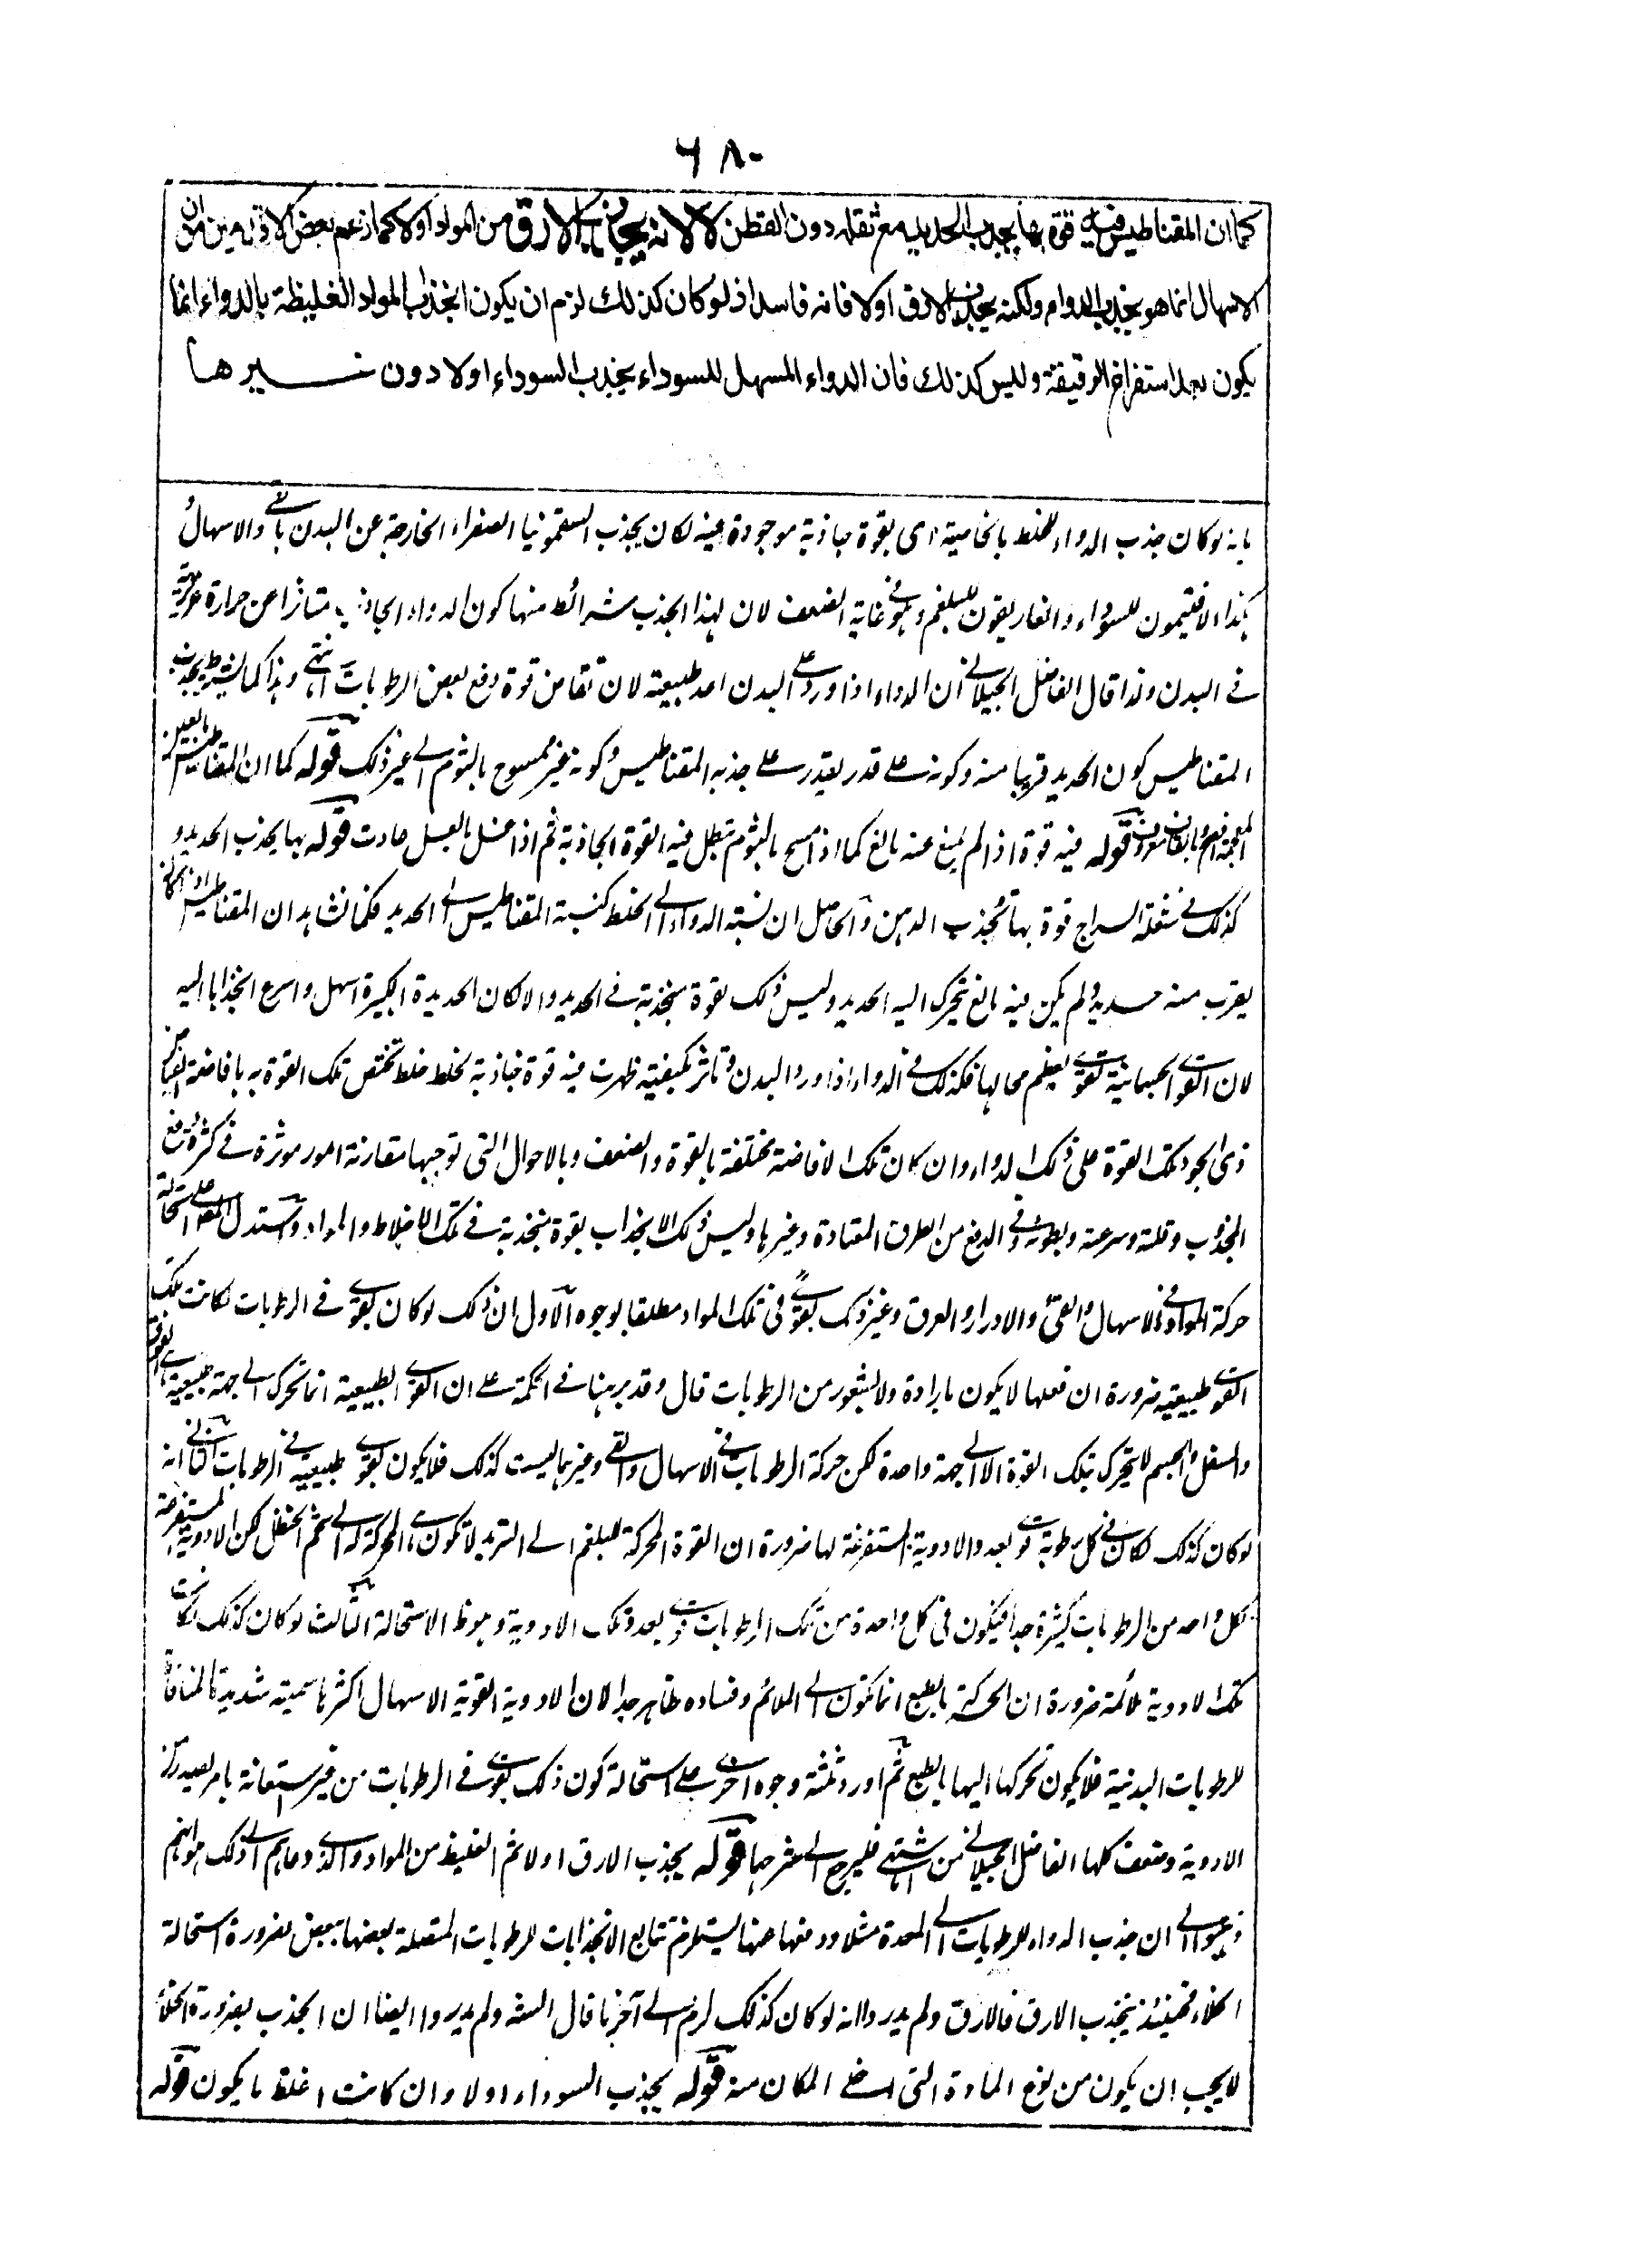 ٦٨٠
كما ان المقناطيس فيه قوة بها يجذب الحديد مع ثقله دون القطن لا لانه يجذب الارق من المواد اولا كما زعم بعض الاقدمين من ان
الاسهال انما هو بجذب الدواء ولكنه يجذب الارق اولا فانه فاسد اذ لو كان كذلك لزم ان يكون انجذاب المواد الغليظة بالدواء انما
يكون بعد استفراغ الرقيقة وليس كذلك فان الدواء المسهل للسوداء يجذب السوداء اولا دون غيرها
بانه لو كان جذب الدواء للخلط بالخاصية اى بقوة جاذبة موجودة فيه لكان يجذب السقمونيا الصفراء الخارجة عن البدن والاسهال
الافتيمون للسوداء والغاريقون للبلغم وهو فى غاية الضعف لان لهذا الجذب شرائط منها كون الدواء الجاذب متاثرا عن حرارة غريزية
فى البدن ولذا قال الفاضل الجيلانى ان الدواء اذا ورد على البدن طبيعته لان من قوة دفع بعض الرطوبات انتهى وهذا كما يشترط بجذب
المقناطيس كون الحديد قريبا منه وكونه على قدر يقدر على جذبه المقناطيس وكونه غير ممسوح بالثوم الى غير ذلك قوله كما ان المقناطيس
قوله فيه قوة اذا لم يمنع عنه مانع كما اذا مسح بالثوم تبطل فيه القوة الجاذبة ثم اذا غسل بالعسل عادت قوله بها يجذب الحديد و
كذلك فى شعلة السراج قوة بها تجذب الدهن والحاصل ان نسبة الدواء الى الخلط كنسبة المقناطيس الى الحديد فكما نشاهد ان المقناطيس اذا كان
يقرب منه حديد ولم يكن فيه مانع يتحرك اليه الحديد وليس ذلك بقوة منجذبة فى الحديد والا لكان الحديدة الكبيرة اسهل واسرع انجذابا اليه
لان القوى الجسمانية تقوى بعظم محالها فكذلك فى الدواء اذا ورد البدن وتاثر بكيفيته ظهرت فيه قوة جاذبة لخلط خلط تختص تلك القوة به بافاضة
ذى الجود تلك القوة على ذلك الدواء وان كان تلك الافاضة مختلفة بالقوة والضعف وبالاحوال التى توجبها مقارنة امور موثرة فى كثرة
المجذوب وقلته وسرعته وبطوئه وفى الدفع من الطرق المعتادة وغيرها وليس ذلك الانجذاب بقوة منجذبة فى تلك الاخلاط والمواد واستدل على استحالة
حركة المواد فى الاسهال والقئ والادرار والعرق وغير ذلك بقوى فى تلك المواد مطلقا بوجوه الاول ان ذلك لو كان بقوى فى الرطوبات لكانت تلك
القوى طبيعية ضرورة ان فعلها لا يكون بارادة ولا بشعور من الرطوبات قال وقد برهنا فى الحكمة على ان القوى الطبيعية انما تحرك الى جهة طبيعية
والسفل والجسم لا يتحرك بتلك القوة الا الى جهة واحدة لكن حركة الرطوبات فى الاسهال والقئ وغيرهما ليست كذلك فلا يكون بقوى طبيعية فى الرطوبات الثانى انه
لو كان كذلك لكان فى كل رطوبة قوى بعدد الادوية المستفرغة لها ضرورة ان القوة المحركة للبلغم الى التربد لا تكون هى المحركة له الى شحم الحنظل لكن الادوية المستفرغة
لكل واحد من الرطوبات كثيرة جدا فيكون فى كل واحدة من تلك الرطوبات قوى بعدد تلك الادوية وهو ظاهر الاستحالة الثالث لو كان كذلك لكانت
تلك الادوية ملائمة ضرورة ان الحركة بالطبع انما تكون الى الملائم وفساده ظاهر جدا لان الادوية القوية الاسهال اكثرها سمية شديدة المنافاة
للرطوبات البدنية فلا يكون تحركها اليها بالطبع ثم اورد ثلثة وجوه اخرى على استحالة كون ذلك بقوى فى الرطوبات من غير استعانة بامر يصدر من
الادوية وضعف كلها الفاضل الجيلانى من اشتهى فليرجع الى شرحها قوله يجذب الارق اولا ثم الغليظ من المواد والذى دعاهم الى ذلك هو انهم
ذهبوا الى ان جذب الدواء للرطوبات الى المعدة مثلا ودفعها عنها يستلزم تتابع الانجذابات للرطوبات المتصلة بعضها ببعض لضرورة استحالة
الخلاء فحينئذ ينجذب الارق فالارق ولم يدروا انه لو كان كذلك لزم الى آخر ما قال الشه ولم يدروا ايضا ان الجذب بضرورة الخلاء
لا يجب ان يكون من نوع المادة التى اخلى المكان منه قوله يجذب السوداء اولا وان كانت اغلظ ما يكون قوله